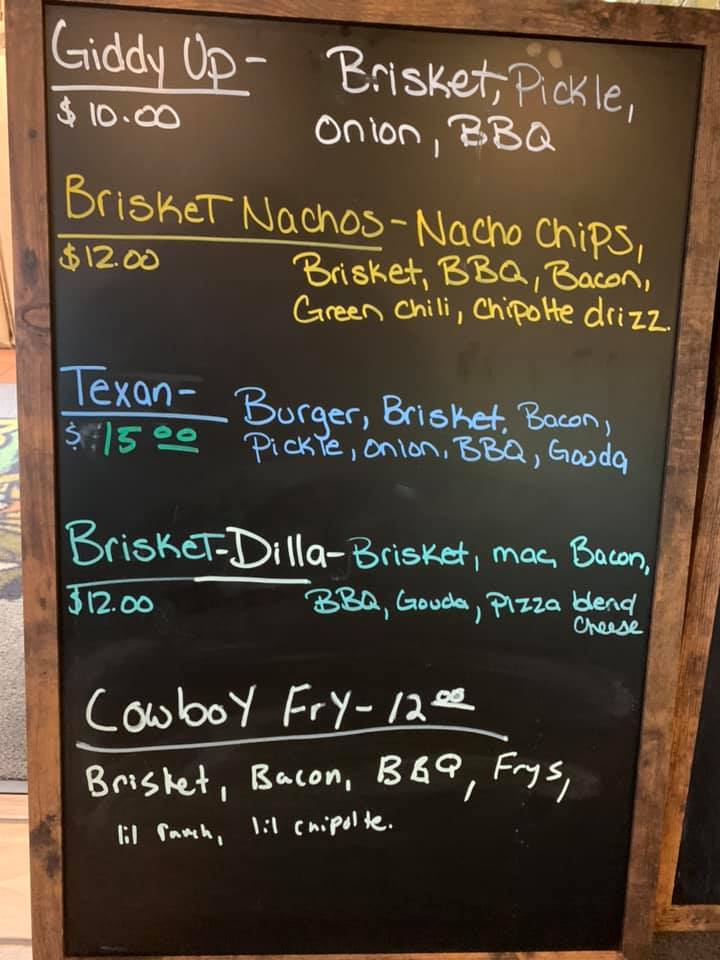 Giddy Up - Brisket, Pickle,
$ 10.00 onion, BBQ
Brisket Nachos - Nacho Chips,
$12.00 Brisket, BBQ, Bacon,
Green chili, chipotle drizz.
Texan - Burger, Brisket, Bacon,
$ 15 00 Pickle, onion, BBQ, Gouda
Brisket-Dilla - Brisket, mac, Bacon,
$12.00 BBQ, Gouda, Pizza blend
cheese
Cowboy Fry - 12 00
Brisket, Bacon, BBQ, Frys,
lil ranch, lil chipolte.